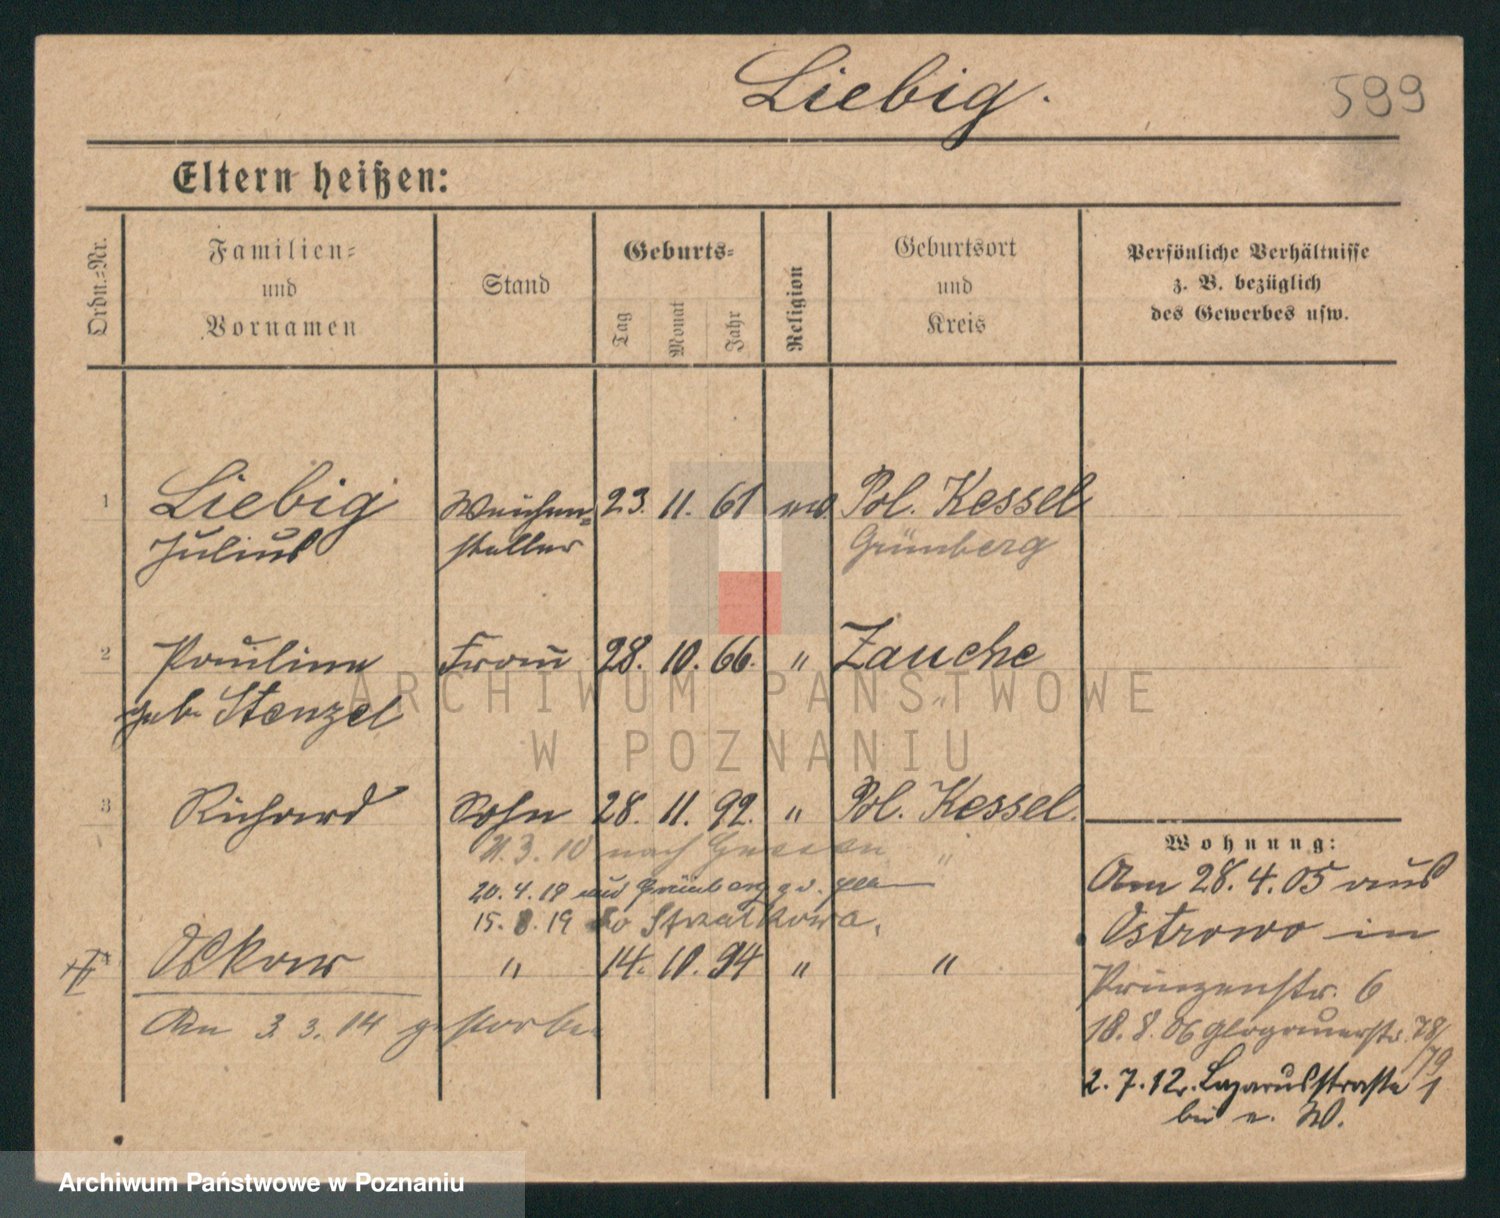 Liebig.
599
Eltern heißen:
Ordn.-Nr.
Familien-
und
Vornamen
Stand
Geburts-
Tag
Monat
Jahr
Religion
Geburtsort
und
Kreis
Persönliche Verhältnisse
z. B. bezüglich
des Gewerbes usw.
1 Liebig Weichen- 23. 11. 61 ev. Pol. Kessel
Julius steller Grünberg
2 Pauline Frau 28. 10. 66. " Zauche
geb. Stenzel "
3 Richard Sohn 28. 11. 92. " Pol. Kessel.
3. 10 nach "
20. 4. 19 aus Grünberg
15. 8. 19 Strzalkowo.
Oskar " 14. 10. 94 " "
Am 3. 3. 14 gestorben
Wohnung:
Am 28. 4. 05 aus
Ostrowo in
Prinzenstr. 6
18. 8. 06 Glogauerstr. 78/
79
2. 7. 12. Lazarusstraße 1
bei e. W.
ARCHIWUM PAŃSTWOWE
W POZNANIU
Archiwum Państwowe w Poznaniu